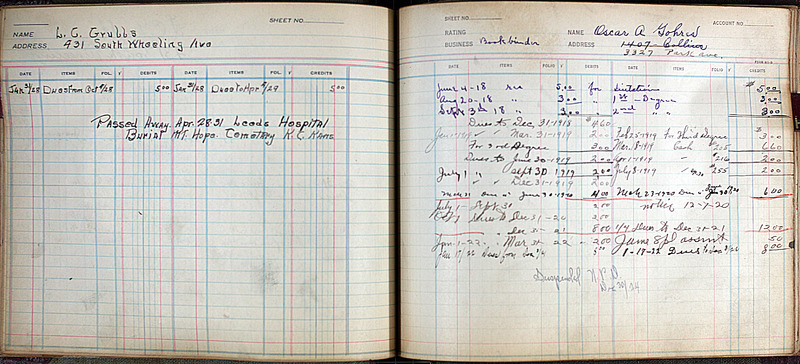 SHEET NO.
NAME L. C. Grubbs
ADDRESS 431 South Wheeling Ave
DATE ITEMS FOL. √ DEBITS DATE ITEMS FOL. √ CREDITS
Dues from Oct 1/28 5 00 Jan 31/28 Dues to Apr 1/29 5 00
Passed Away. Apr. 28-31 Leeds Hospital
Burial MT. Hope. Cemetery K.C. Kans.
SHEET NO.
ACCOUNT NO.
RATING NAME Oscar A Gohres
BUSINESS Bookbinder ADDRESS 1407 Collins
3327 Park ave.
DATE ITEMS FOLIO √ DEBITS DATE ITEMS FOLIO √ CREDITS
June 4-18 5.00 for Initiation $ 5.00
Aug 20-18 " 3.00 " 1st - Degree 3.00
Sept 3rd 18 " 3.00 " 2nd " " 3.00
Dues to Dec 31-1918 $4.60
Mar. 31-1919 2.00 Feb 25-1919 For Third Degree 3.00
For 3rd Degree 3.00 Mar. 8-1919 Cash 215 6.60
Dues to June 30-1919 2.00 Apr 1-1919 " 216 2.00
July 1 " " Sept 30 1919 2.00 July 8-1919 " 255 2.00
" " Dec 31-1919 2.00
June 30-1920 4.00 Dues 6.00
July 1 - Sept 30 2.00 notice 12-7-20
Oct 1 Dues to Dec 31-20 2.00
" Dec 31-21 8.00 Dues to Dec 31-21 12.00
Jan. 1-22 " Mar 31-22 2.00 assmt 50
1-18-22 Dues to 8.00
Suspended N.P.D.
Dec 20/24